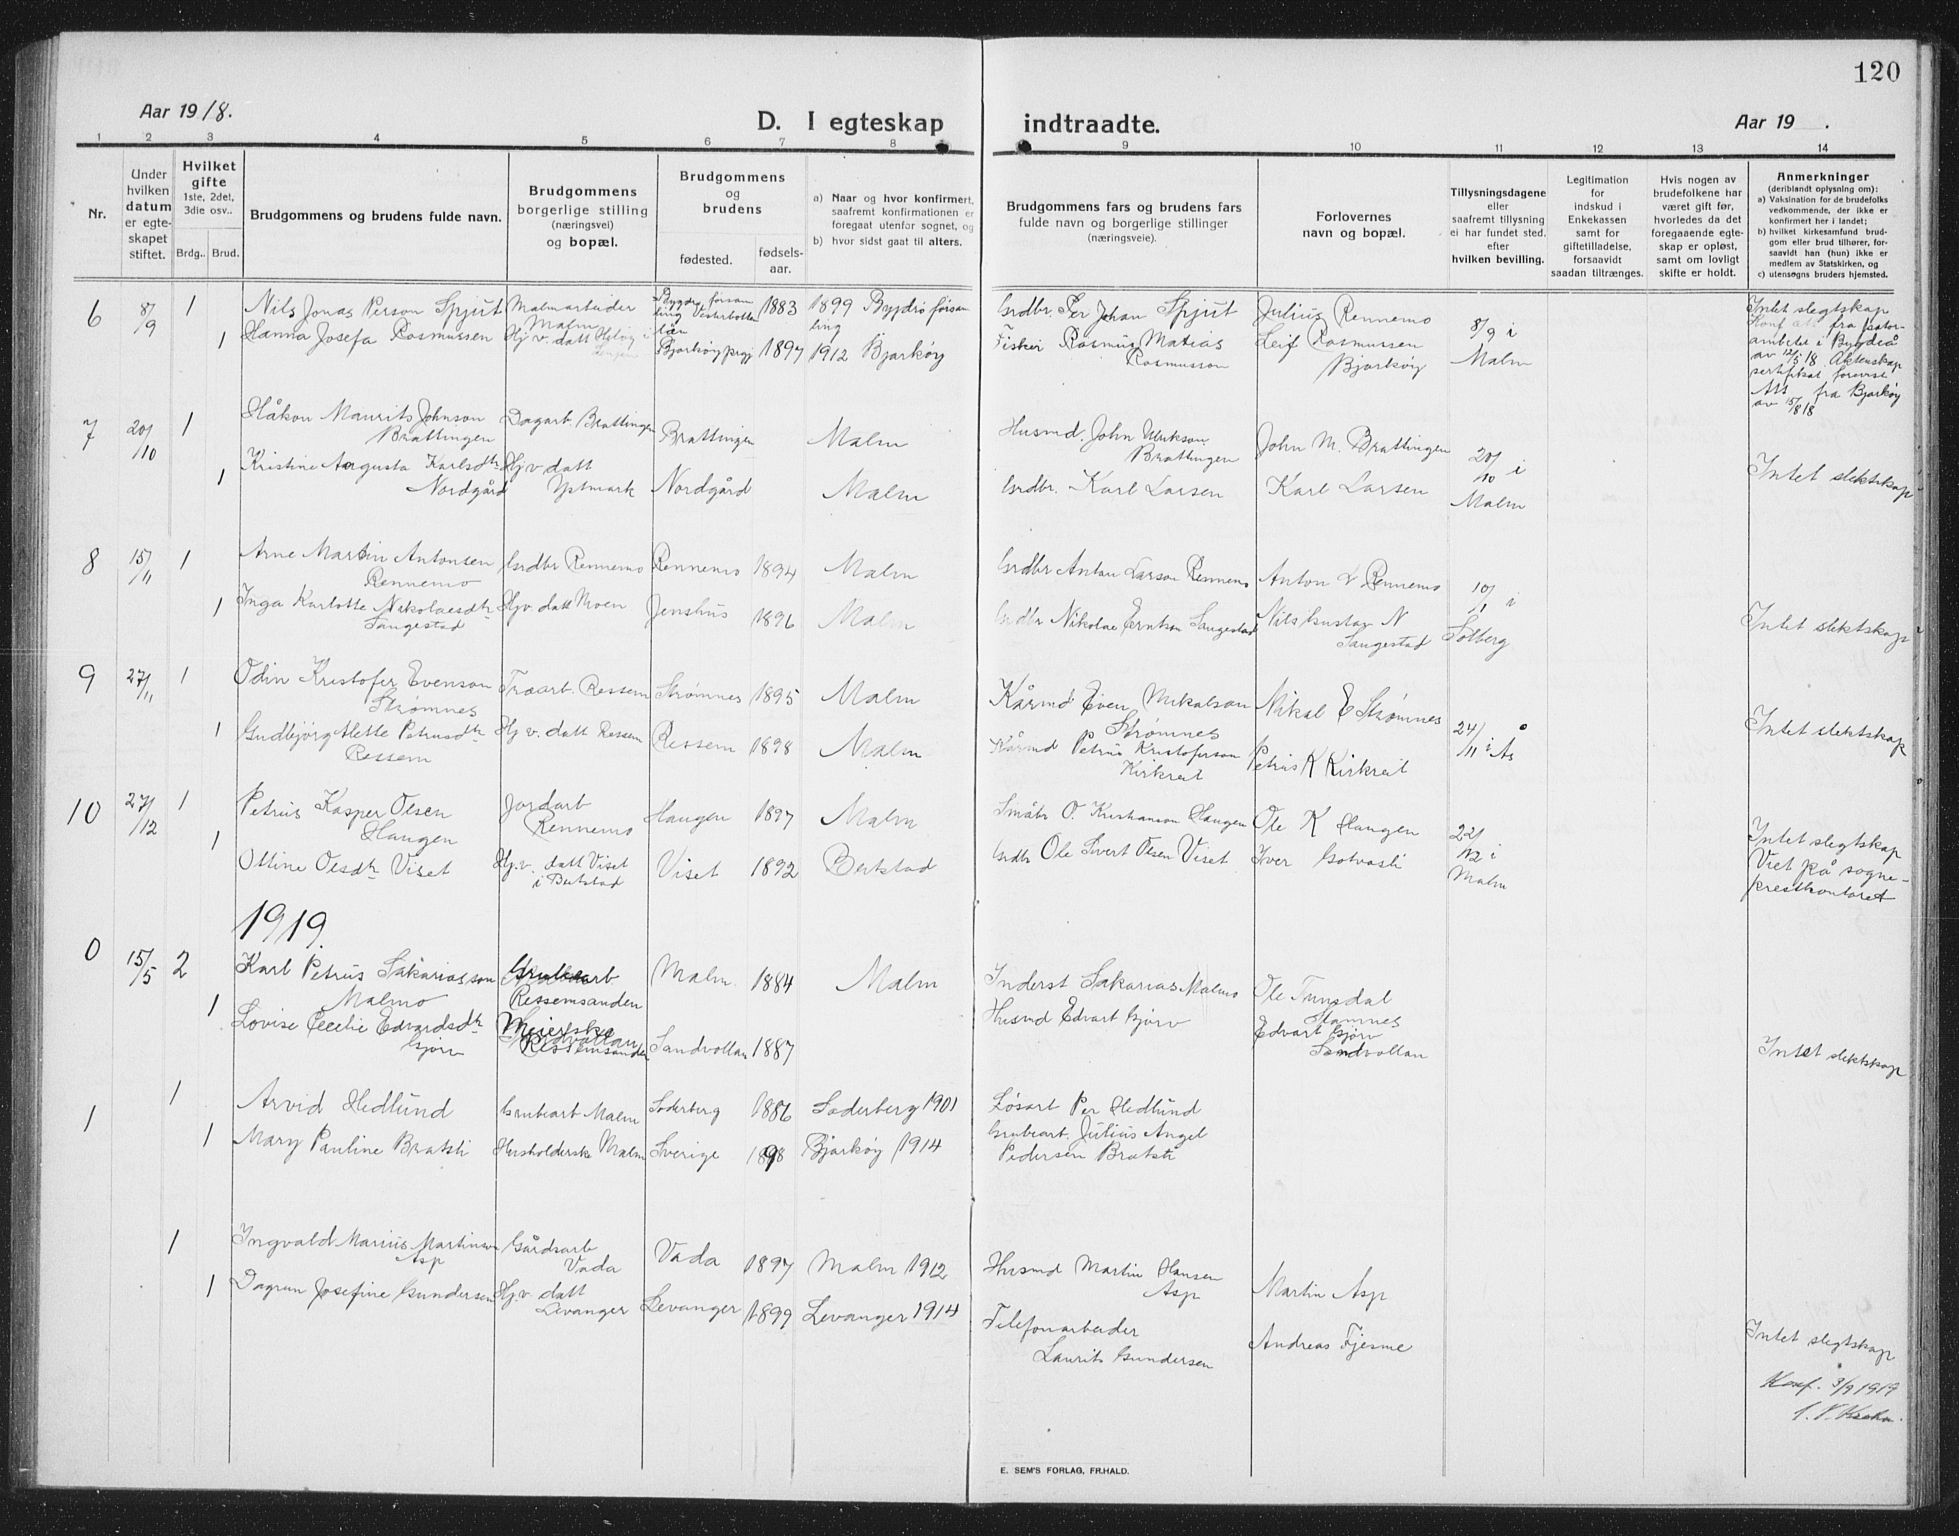 120
Aar 1918.
D. I egteskap
indtraadte.
Aar 19 .
1 2 3 4 5 6 7 8 9 10 11 12 13 14
Nr.
Under
hvilken
datum
er egte-
skapet
stiftet.
Hvilket
gifte
1ste, 2det,
3die osv..
Brdg.. Brud.
Brudgommens og brudens fulde navn.
Brudgommens
borgerlige stilling
(næringsvei)
og bopæl.
Brudgommens
og
brudens
fødested.
fødsels-
aar.
a) Naar og hvor konfirmert,
saafremt konfirmationen er
foregaat utenfor sognet, og
b) hvor sidst gaat til alters.
Brudgommens fars og brudens fars
fulde navn og borgerlige stillinger
(næringsveie).
Forlovernes
navn og bopæl.
Tillysningsdagene
eller
saafremt tillysning
ei har fundet sted.
efter
hvilken bevilling.
Legitimation
for
indskud i
Enkekassen
samt for
giftetilladelse,
forsaavidt
saadan tiltrænges.
Hvis nogen av
brudefolkene har
været gift før,
hvorledes da det
foregaaende egte-
skap er opløst,
samt om lovligt
skifte er holdt.
Anmerkninger
(deriblandt oplysning om):
a) Vaksination for de brudefolks
vedkommende, der ikke er
konfirmert her i landet;
b) hvilket kirkesamfund brud-
gom eller brud tilhører, for-
saavidt han (hun) ikke er
medlem av Statskirken, og
c) utensogns bruders hjemsted.
6 8/9 1 Nils Jonas Person Spjut Malmarbeider Malm 1883 1899 Bygdeå församling Grdbr Per Johan Spjut Julius Rennemo 8/9 i Malm
1 Hanna Josefa Rasmussen Hj v. datt Bjarkøy prgj 1897 1912 Bjarkøy Fisker Rasmus Matias Rasmusson Leif Rasmussen Bjarkøy
Intet slegtskap
fra pastor-
ambetet i Bygdeå
av 12/5 18. Aktenskap
sertifikat forevist
Att fra Bjarkøy
av 15/8 18
7 20/10 1 Håkon Maurits Johnson Brattingen Dagarb Brattingen Brattingen Malm Husmd. John Ulrikson Brattingen John M. Brattingen 20/10 i Malm
1 Kristine Augusta Karlsdtr Nordgård Hj v. datt Ystmark Nordgård Malm Grdbr. Karl Larsen Karl Larsen Intet slektskap
8 15/11 1 Arne Martin Antonsen Rennemo Grdbr Rennemo Rennemo 1894 Malm Grdbr Anton Larson Rennemo Anton L Rennemo 10/11 i Solberg
1 Inga Karlotte Nikolaesdtr Langestad Hj v. datt Moen Jenshus 1896 Malm Grdbr Nikolai Langestad Nils Gustav N Langestad Intet slektskap
9 27/11 1 Odin Kristofer Evenson Strømnes Træarb. Ressem Strømnes 1895 Malm Kårmd Even Mikalson Strømnes Mikal E Strømnes 24/11 i Ås
1 Gudbjørg Alette Petrusdtr Ressem Hj v. datt Ressem Ressem 1898 Malm Kårmd Petrus Kristoferson Kirkreit Petrus K Kirkreit Intet slektskap
10 27/12 1 Petrus Kasper Olsen Haugen Jordarb Rennemo Haugen 1897 Malm Småbr O. Kristianson Haugen Ole K Haugen 22/12 i Malm
1 Ottine Olsdtr Viset Hj.v. datt Viset i Beitstad Viset 1892 Beitstad Grdbr Ole Sivert Olsen Viset Iver Intet slegtskap
Viet på sogne-
prestkontoret
1919.
0 15/5 2 Karl Petrus Sakariasson Malmo Grubearb Ressemsanden Malm 1884 Malm Inderst Sakarias Malmo Ole Tunsdal Stamnes
1 Lovise Cecilie Edvardsdtr Gjørv Meierske Ressemsanden Sandvollan 1887 Husmd Edvart Gjørv Edvart Gjørv Sandvollan Intet slektskap
1 1 Arvid Hedlund Grubearb Malm Söderberg 1886 Söderberg 1901 Løsarb Per Hedlund
1 Mary Pauline Bratsti Husholderske Malm Sverige 1898 Bjarkøy 1914 Grubearb. Julius Angel Pedersen Bratsti
1 Ingvald Marius Martinsen Asp Gårdsarb Vada Vada 1897 Malm 1912 Husmd Martin Hansen Asp Martin Asp
1 Dagrun Josefine Gundersen Hj.v. datt Levanger Levanger 1899 Levanger 1914 Telefonarbeider Laurits Gundersen Andreas Fjesme Intet slegtskap
Konf. 3/9 1919
E. SEM'S FORLAG, FR.HALD.